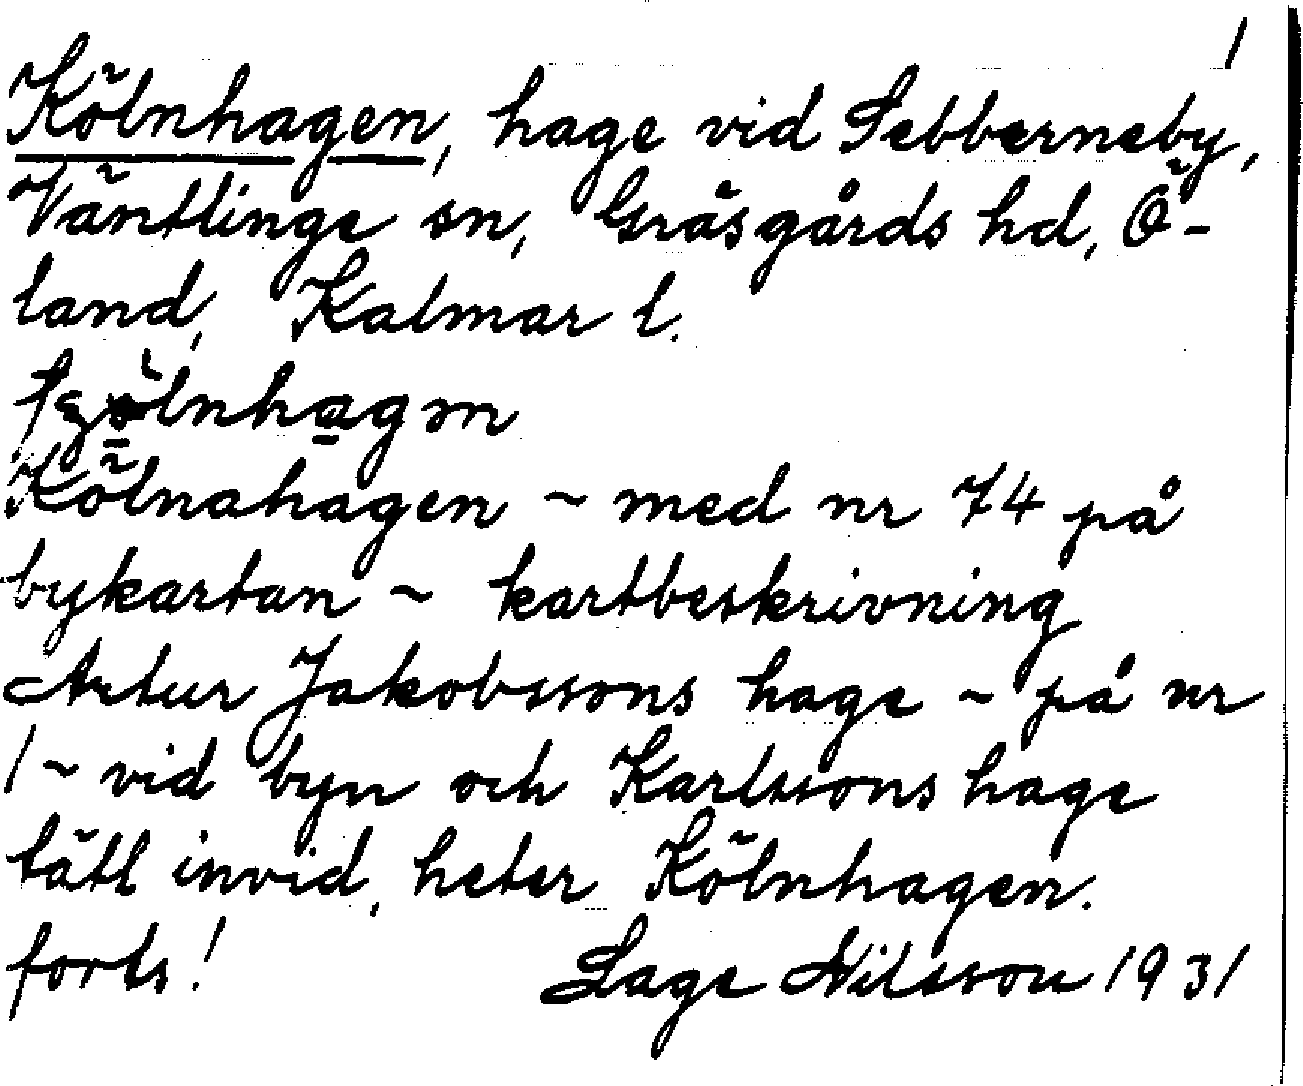 1
Kölnhagen, hage vid Sebberneby,
Väntlinge sn, Gräsgårds hd, Ö-
land, Kalmar l.
Kölnahagen ~ med nr 74 på
bykartan ~ kartbeskrivning
Artur Jakobssons hage ~ på nr
1 ~ vid byn och Karlssons hage
tätt invid, heter Kölnhagen.
forts! Lage Nilsson 1931